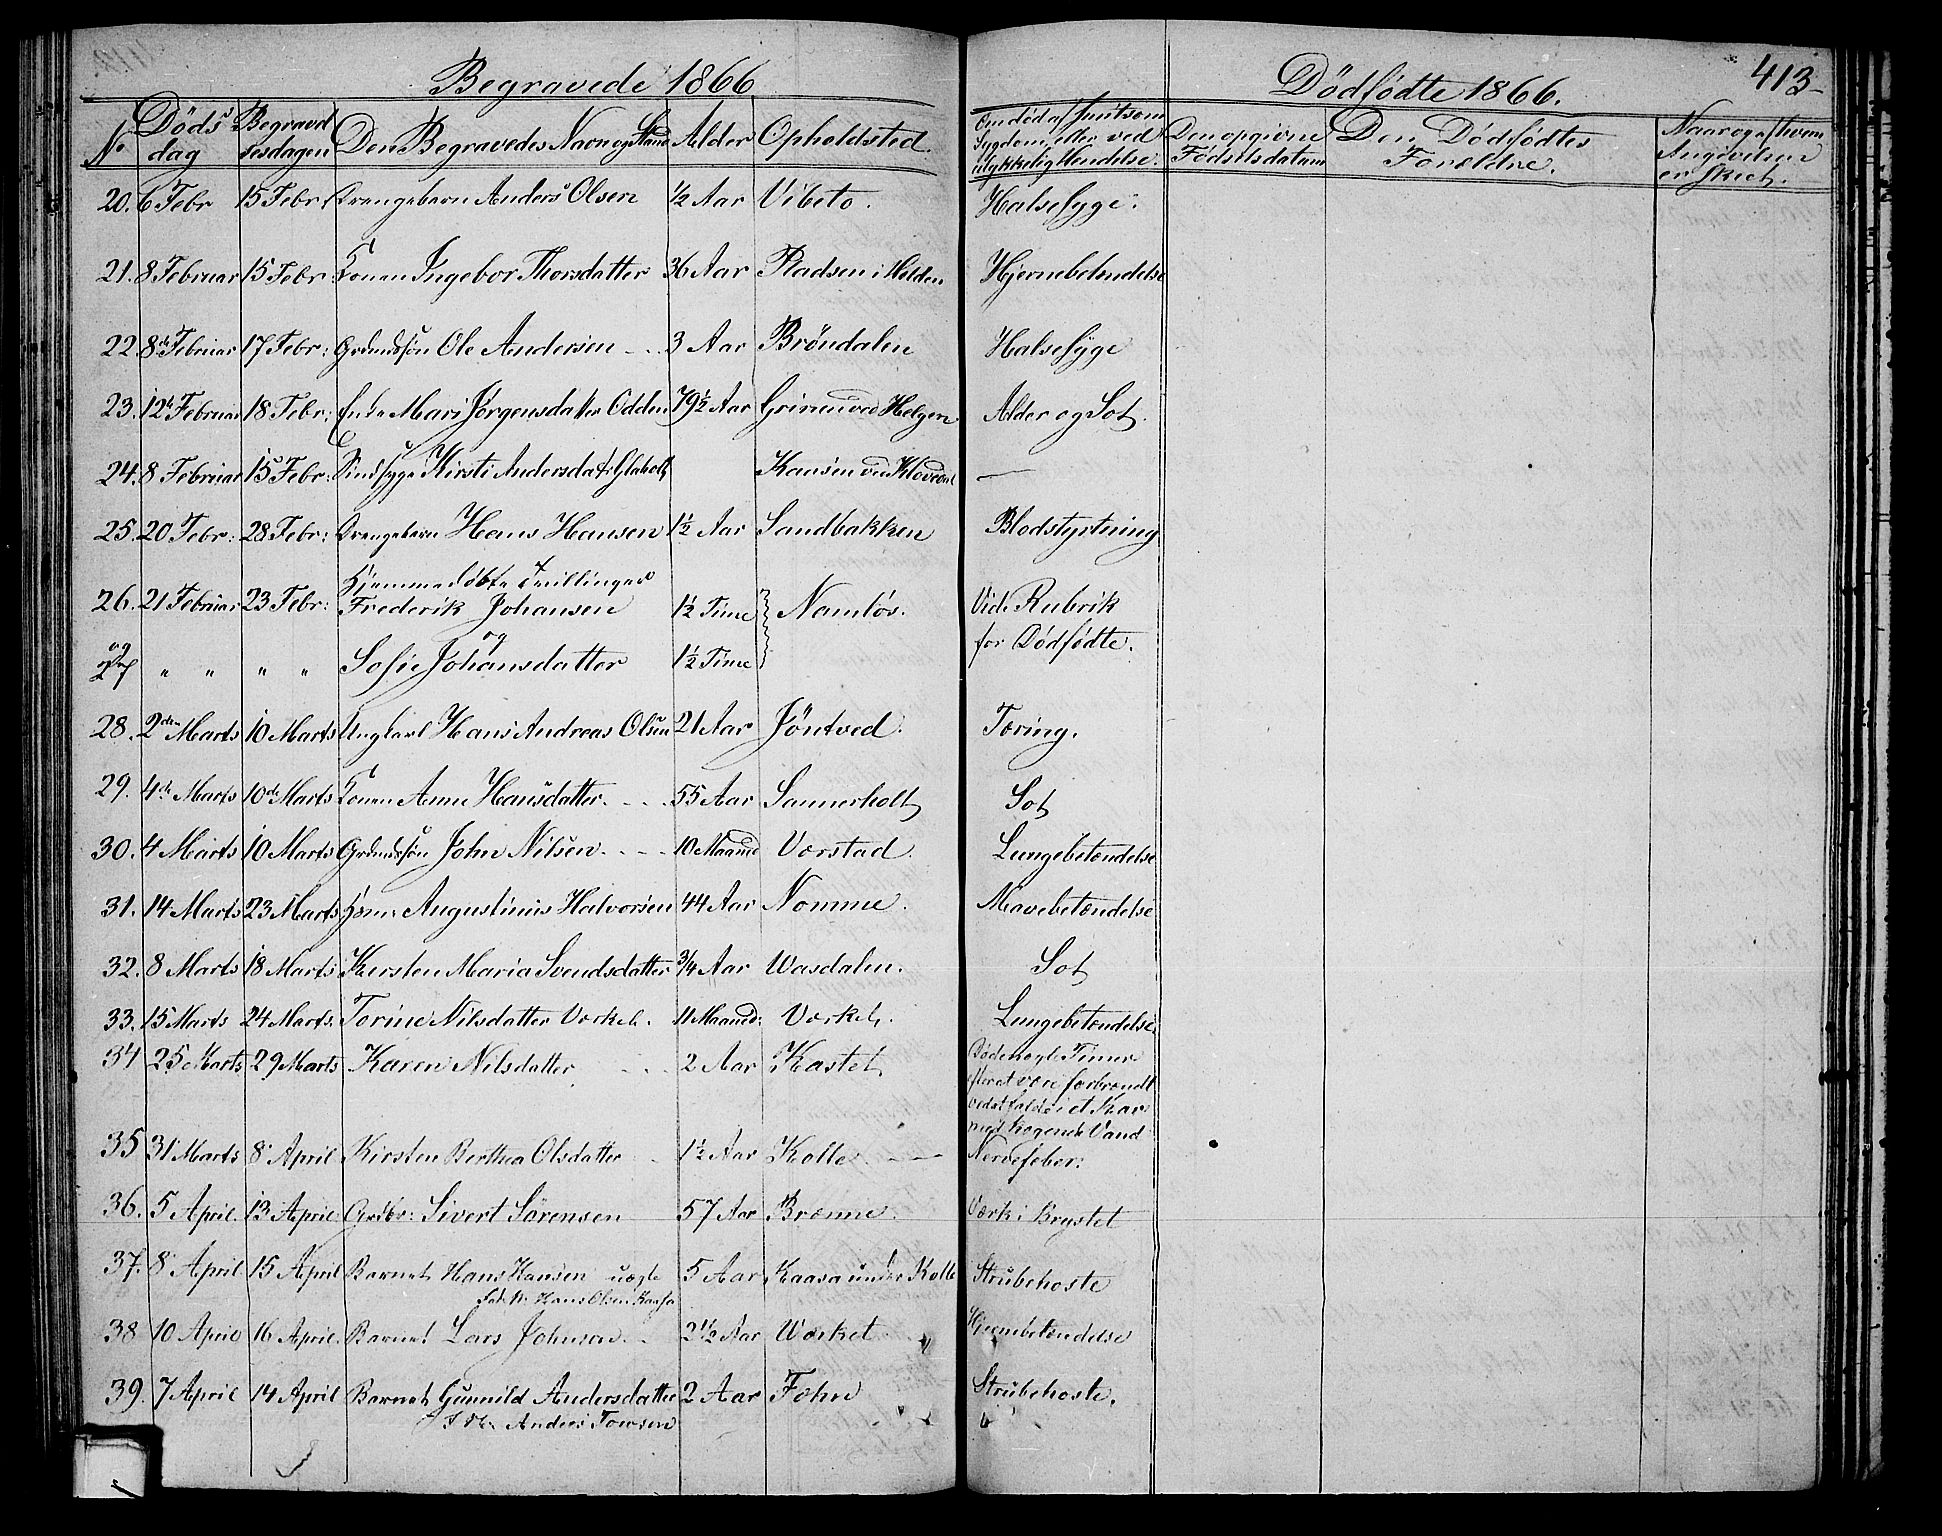 Begravede 1866
Dödfödte 1866.
413
No Döds dag Begravelsesdagen Den Begravedes Navn og Stand Alder Opholdsted.
Om död af smitsom Sygdom, eller ved ulykkelig Hendelse. Den opgivne Födselsdatum Den Dödfödtes Forældre. Naar og af hvem Angivelsen er skeet.
20. 6 Febr 15 Febr. Drengebarn Anders Olsen ½ Aar Vibeto. Halsesyge.
21. 8 Februar 15 Febr Konen Ingebor Thorsdatter 36 Aar Pladsen i Helden Hjernebetendelse
22. 8de Februar 17 Febr: Grdmdssön Ole Andersen 3 Aar Bröndalen Halsesyge
23. 12te Februar 18 Febr: Enke Mari Jörgensdatter Odden 79½ Aar Grinen ved Helgen Alder og Sot.
24. 8 Februar 15 Febr: Sindsyge Kirsti Andersdatr Glaholt Kaasen ved —
25. 20 Febr: 28 Febr: Drengebarn Hans Hansen 1½ Aar Sandbakken Blodstyrtning
Hjemmedöbte Tvillinger
26. 21 Februar 23 Febr: Frederik Johansen 1½ Time Namlös. Vide Rubrik
og for Dödfödte.
og 27 " " " " Sofie Johansdatter 1½ Time
28. 2den Marts 10 Marts Ungkarl Hans Andreas Olsen 21 Aar Jöntved. Tæring.
29. 4de Marts 10de Marts Konen Anne Hansdatter 55 Aar Sannerholt Sot
30. 4 Marts 10 Marts Grdmdssön John Nilsen 10 Maaned Værstad. Lungebetændelse
31. 14 Marts 23 Marts Augustinus Halvorsen 44 Aar Nomme. Mavebetændelse
32. 8 Marts 18 Marts Kirsten Maria Svendsdatter ¾ Aar Wasdalen. Sot
33. 15 Marts 24 Marts. Torine Nilsdatter Værket. 11 Maaned: Værket. Lungebetændelse
34 25 Marts 29 Marts Karen Nilsdatter 2 Aar Kastet Döde nogle Timer
efter at være forbrændt
ved at falde i et Kar
med kogende Vand
35 31 Marts 8 April Kirsten Berthea Olsdatter 1½ Aar Kolle Nervefeber:
36. 5 April. 13 April. Grdbr: Sivert Sörensen 57 Aar Brænne. Værk i Brystet
37. 8 April 15 April Barnet Hans Hansen uægte 5 Aar Kaasa under Kolle Strubehoste
Hans Olsen Kaasa
38 10 April 16 April. Barnet Lars Johnsen 2½ Aar Wærket Hjernebetændelse
39. 7 April 14 April Barnet Gunnild Andersdatter 2 Aar Fæhn Strubehoste.
Anders Tovsen